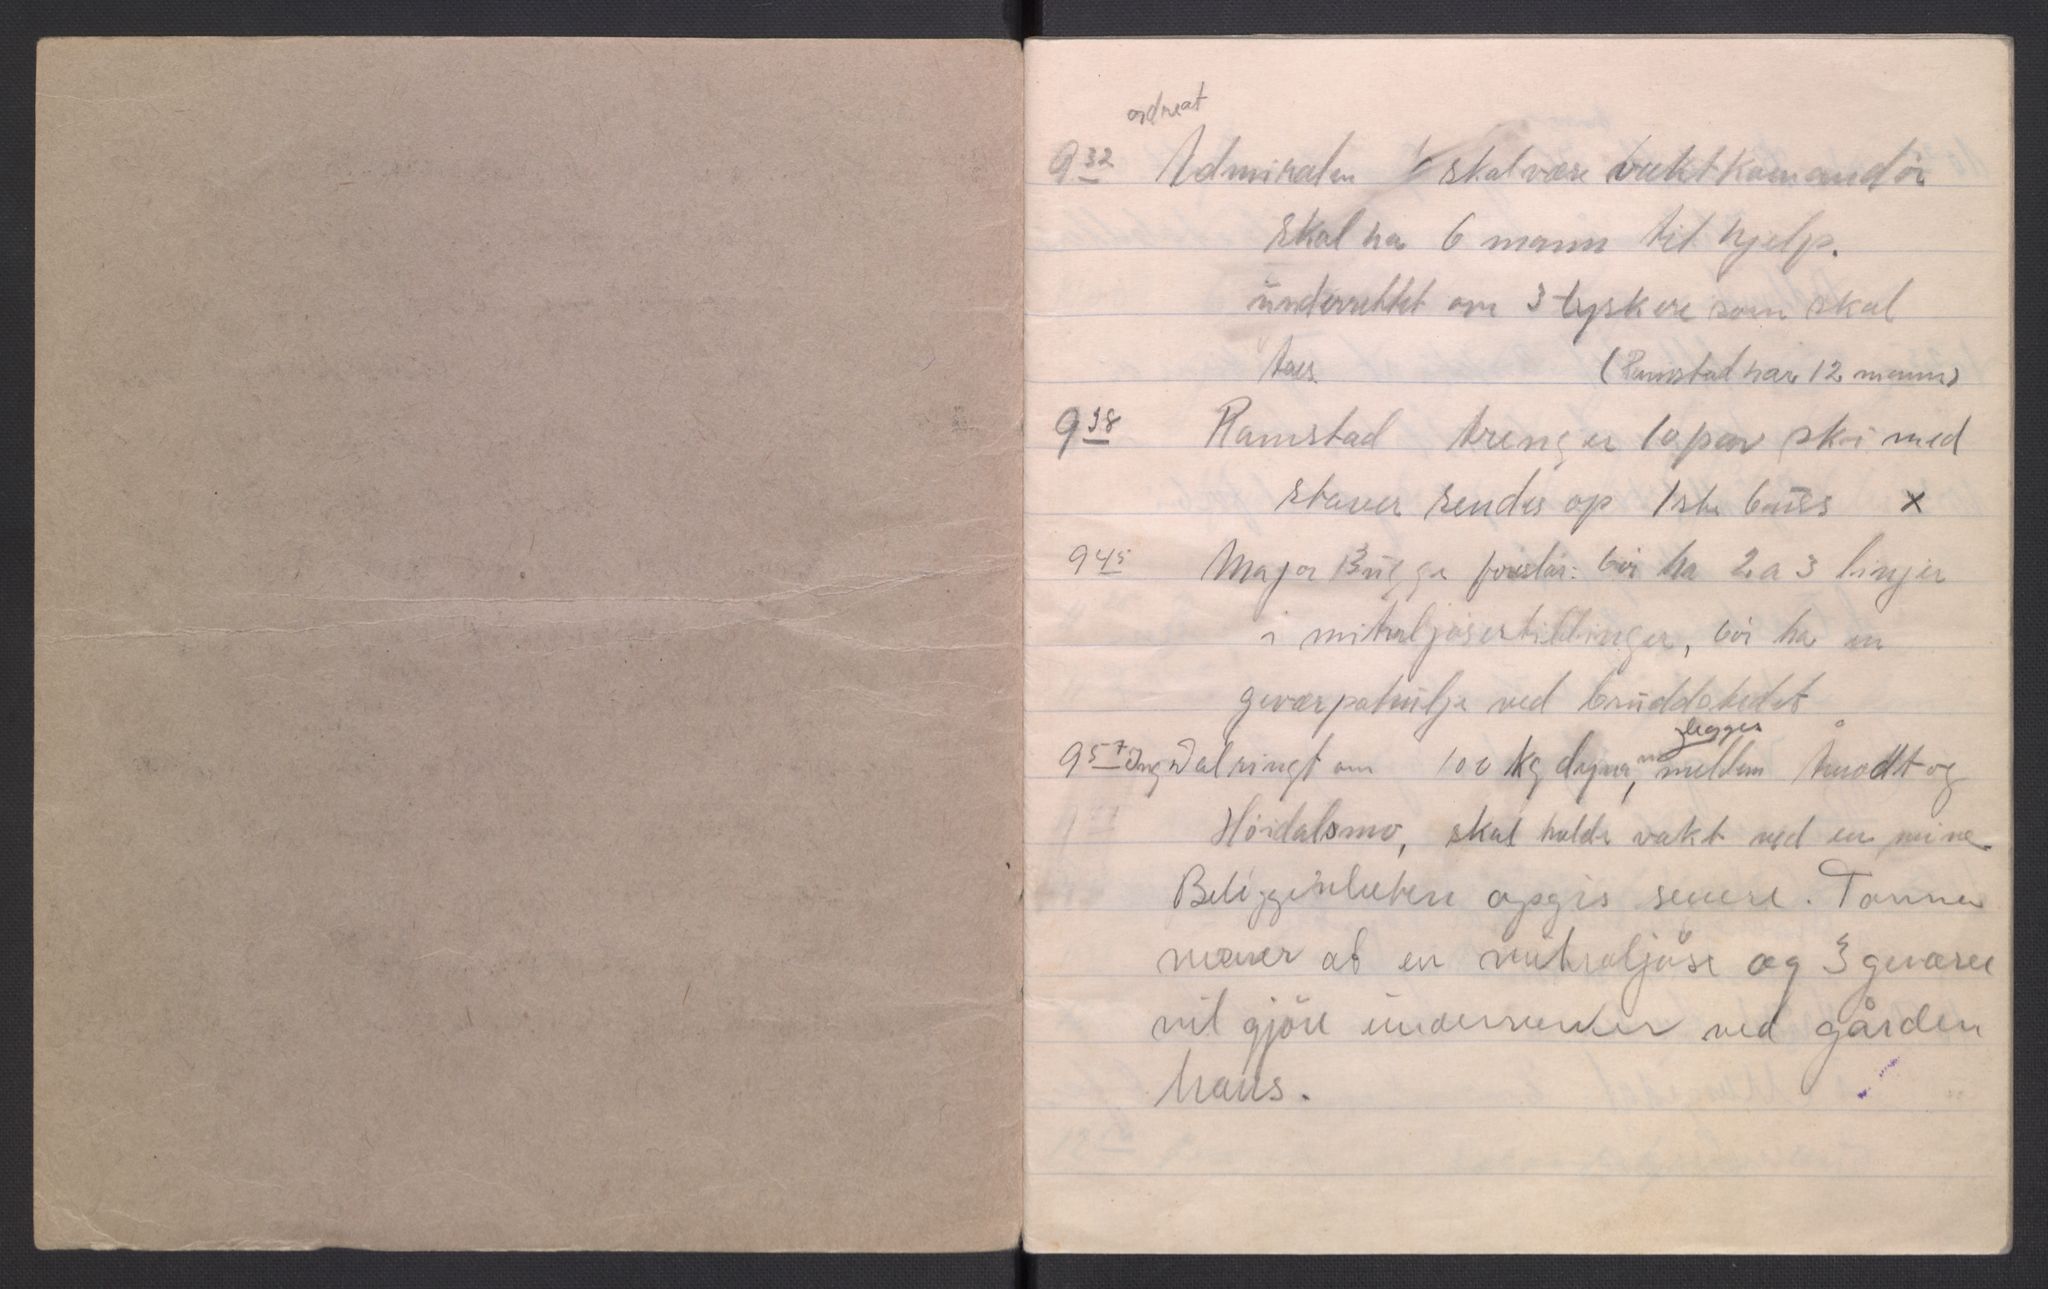 ordneat
9 32 Admiralen skal være vaktkomandör
skal ha 6 mann til hjelp.
underrettet om 3 tyskere som skal
taes (Ramstad har 12 mann)
9 38 Ramstad trenger 10 par ski med
staver sendes op 1ste buss x
9 45 Major Bugge foreslår: bör ha 2 a 3 linjer
i mitraljösestillinger, bör ha en
geværpatrulje ved bruddstedet
legges
9 57 Ing Dal ringt om 100 kg dyna, mellem Åmodt og
Höidalsmo, skal holde vakt ved en mine.
Beliggenheten opgis senere. Tanner
mener at en mitraljöse og 3 geværer
vil gjöre underverker ved gården
hans.